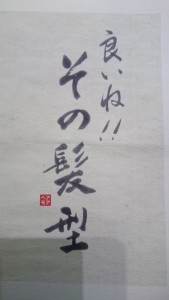 良いね!!
その髪型